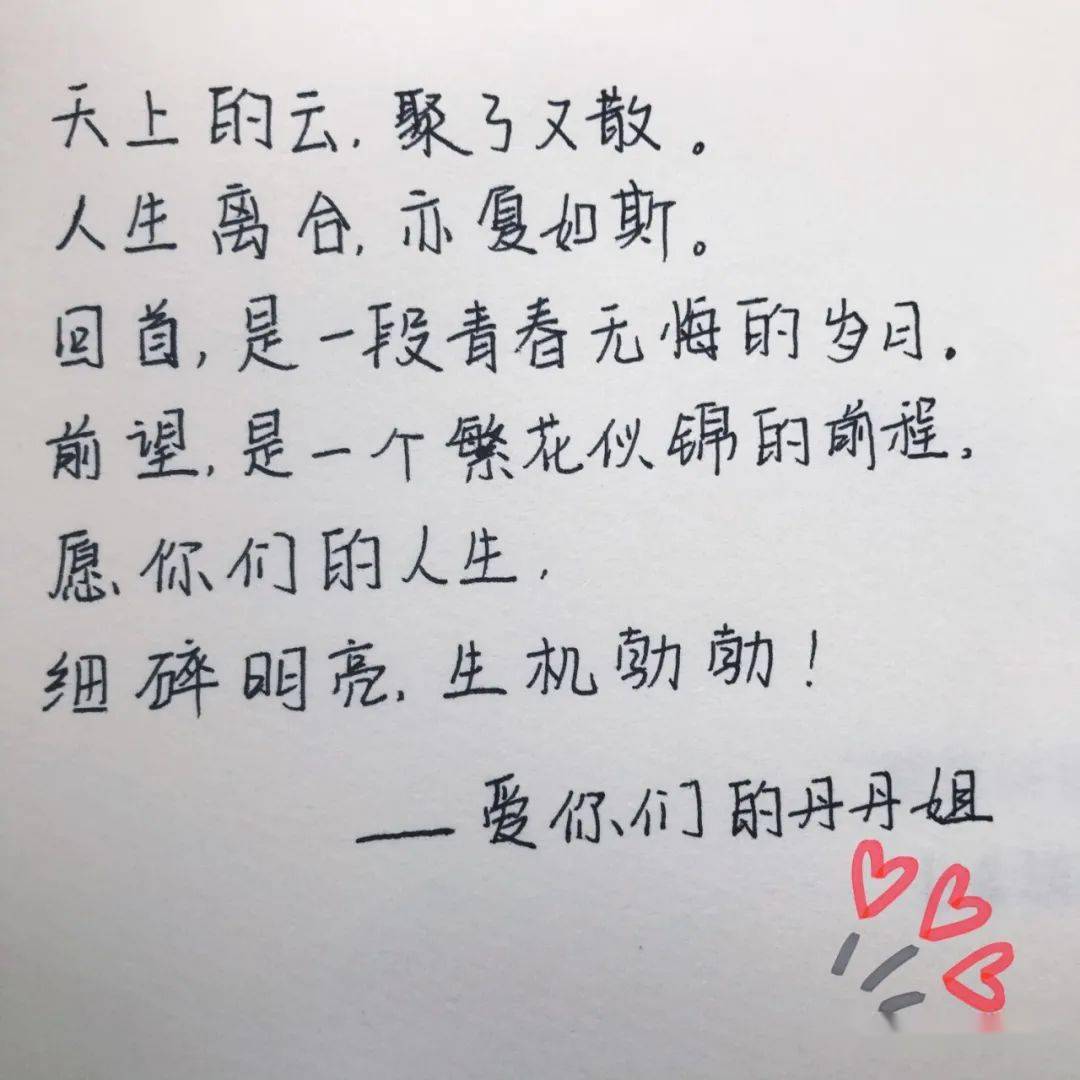 天上的云，聚了又散。
人生离合，亦复如斯。
回首，是一段青春无悔的岁月。
前望，是一个繁花似锦的前程。
愿你们的人生，
细碎明亮，生机勃勃！
——爱你们的丹丹姐